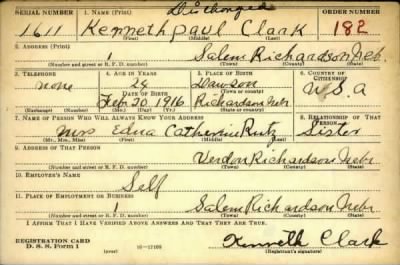 Discharged
SERIAL NUMBER 1. NAME (Print) ORDER NUMBER
1611 Kenneth Paul Clark 182
2. ADDRESS (Print)
1 Salem Richardson Neb.
(Number and street or R. F. D. number) (Town) (County) (State)
3. TELEPHONE 4. AGE IN YEARS 5. PLACE OF BIRTH 6. COUNTRY OF CITIZENSHIP
none 24 Dawson
DATE OF BIRTH (Town or county)
Feb 20 1916 Richardson Nebr U.S.A
(Exchange) (Number) (Mo.) (Day) (Yr.) (State or country)
7. NAME OF PERSON WHO WILL ALWAYS KNOW YOUR ADDRESS 8. RELATIONSHIP OF THAT PERSON
Mrs Edna Catherine Rutz Sister
(Mr., Mrs., Miss) (First) (Middle) (Last)
9. ADDRESS OF THAT PERSON
Verdon Richardson Nebr
(Number and street or R. F. D. number) (Town) (County) (State)
10. EMPLOYER'S NAME
Self
11. PLACE OF EMPLOYMENT OR BUSINESS
1 Salem Richardson Nebr
(Number and street or R. F. D. number) (Town) (County) (State)
I AFFIRM THAT I HAVE VERIFIED ABOVE ANSWERS AND THAT THEY ARE TRUE.
REGISTRATION CARD
D. S. S. Form 1 16-17105 Kenneth Clark
(Registrant's signature)